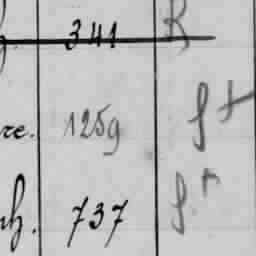 341 R
re. 1259 f+
h. 737 f.+